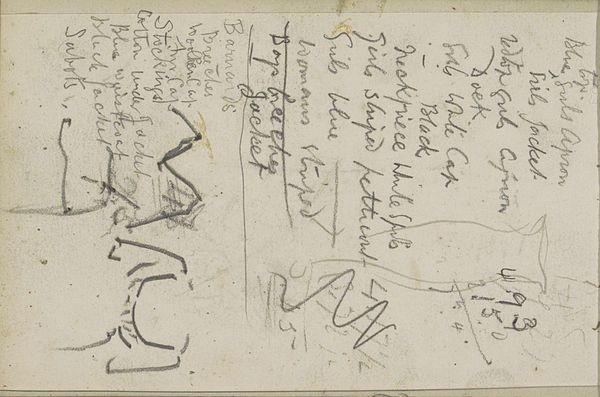 Blue top girls Apron
Girls Jacket
top Girls Apron
Dark
Girls White Cap
– Black
Neckpiece White Girls
Girls Striped petticoat
Girls blue
Womans striped
Boys breeches
Jacket
Barnards
Breeches
Woollen Cap
Fur Cap
Stockings
Cotton under Jacket
Blue waistcoat
Black Jacket
Sabots
4.9.3
15.0